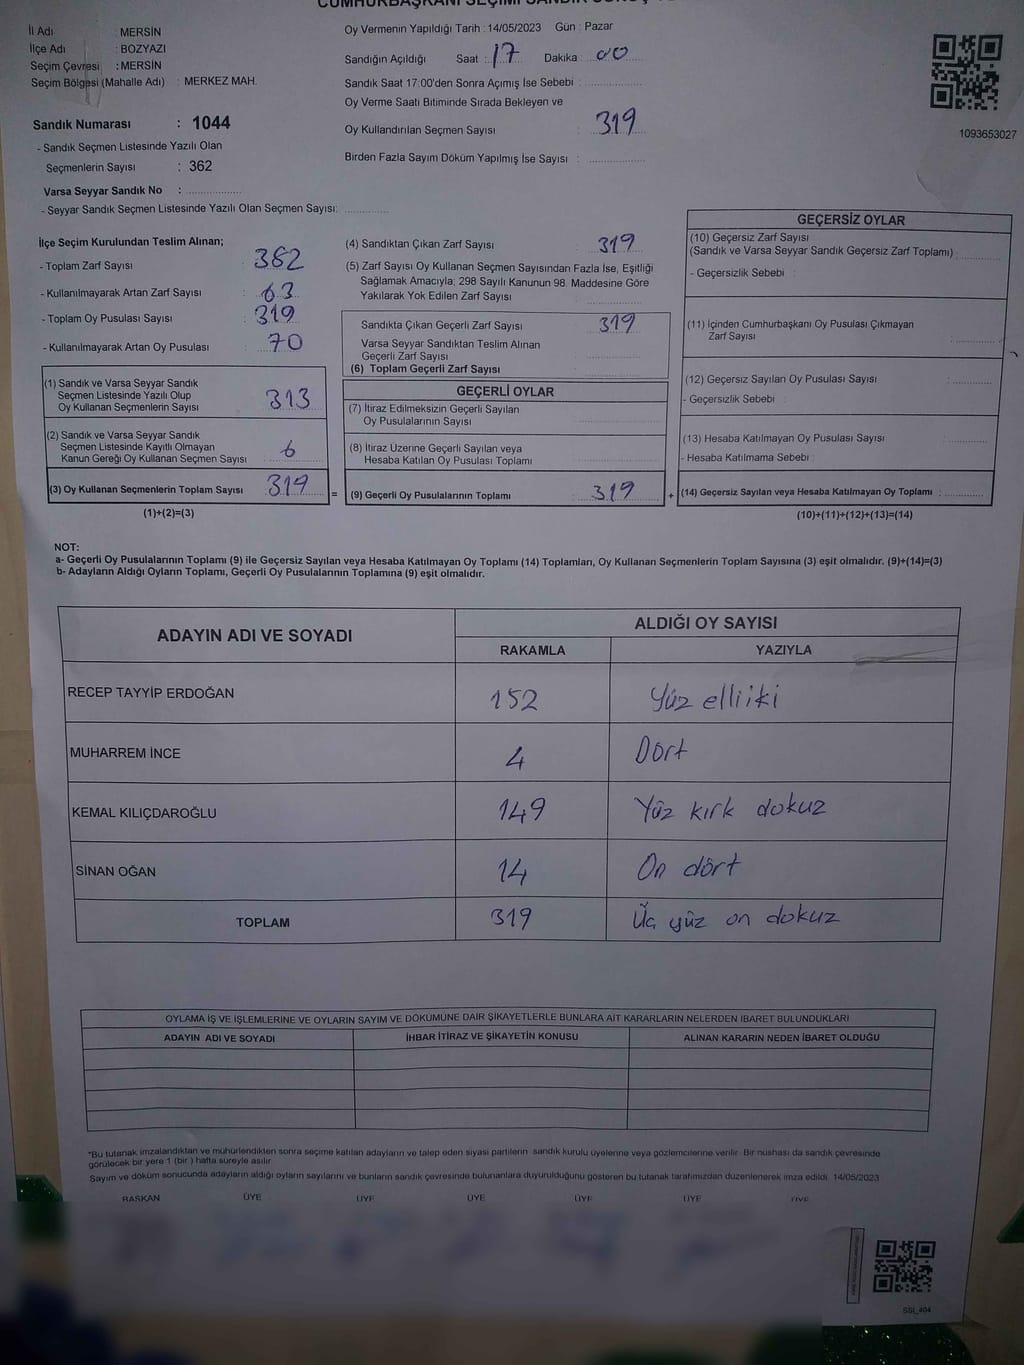 İl Adı : MERSİN
İlçe Adı : BOZYAZI
Seçim Çevresi : MERSİN
Seçim Bölgesi (Mahalle Adı) : MERKEZ MAH.
Sandık Numarası : 1044
- Sandık Seçmen Listesinde Yazılı Olan
Seçmenlerin Sayısı : 362
Varsa Seyyar Sandık No :
- Seyyar Sandık Seçmen Listesinde Yazılı Olan Seçmen Sayısı:
Oy Vermenin Yapıldığı Tarih : 14/05/2023 Gün : Pazar
Sandığın Açıldığı Saat : 17 Dakika : 00
Sandık Saat 17:00'den Sonra Açımış İse Sebebi :
Oy Verme Saati Bitiminde Sırada Bekleyen ve
Oy Kullandırılan Seçmen Sayısı : 319
Birden Fazla Sayım Döküm Yapılmış İse Sayısı :
1093653027
İlçe Seçim Kurulundan Teslim Alınan;
- Toplam Zarf Sayısı : 382
- Kullanılmayarak Artan Zarf Sayısı : 63
- Toplam Oy Pusulası Sayısı : 319
- Kullanılmayarak Artan Oy Pusulası : 70
(1) Sandık ve Varsa Seyyar Sandık
Seçmen Listesinde Yazılı Olup
Oy Kullanan Seçmenlerin Sayısı 313
(2) Sandık ve Varsa Seyyar Sandık
Seçmen Listesinde Kayıtlı Olmayan
Kanun Gereği Oy Kullanan Seçmen Sayısı 6
(3) Oy Kullanan Seçmenlerin Toplam Sayısı 319
(1)+(2)=(3)
=
(4) Sandıktan Çıkan Zarf Sayısı : 319
(5) Zarf Sayısı Oy Kullanan Seçmen Sayısından Fazla İse, Eşitliği
Sağlamak Amacıyla; 298 Sayılı Kanunun 98. Maddesine Göre
Yakılarak Yok Edilen Zarf Sayısı :
Sandıkta Çıkan Geçerli Zarf Sayısı : 319
Varsa Seyyar Sandıktan Teslim Alınan
Geçerli Zarf Sayısı
(6) Toplam Geçerli Zarf Sayısı
GEÇERLİ OYLAR
(7) İtiraz Edilmeksizin Geçerli Sayılan
Oy Pusulalarının Sayısı
(8) İtiraz Üzerine Geçerli Sayılan veya
Hesaba Katılan Oy Pusulası Toplamı
(9) Geçerli Oy Pusulalarının Toplamı : 319
+
GEÇERSİZ OYLAR
(10) Geçersiz Zarf Sayısı
(Sandık ve Varsa Seyyar Sandık Geçersiz Zarf Toplamı) :
- Geçersizlik Sebebi :
(11) İçinden Cumhurbaşkanı Oy Pusulası Çıkmayan
Zarf Sayısı
(12) Geçersiz Sayılan Oy Pusulası Sayısı :
- Geçersizlik Sebebi :
(13) Hesaba Katılmayan Oy Pusulası Sayısı :
- Hesaba Katılmama Sebebi :
(14) Geçersiz Sayılan veya Hesaba Katılmayan Oy Toplamı :
(10)+(11)+(12)+(13)=(14)
NOT:
a- Geçerli Oy Pusulalarının Toplamı (9) ile Geçersiz Sayılan veya Hesaba Katılmayan Oy Toplamı (14) Toplamları, Oy Kullanan Seçmenlerin Toplam Sayısına (3) eşit olmalıdır. (9)+(14)=(3)
b- Adayların Aldığı Oyların Toplamı, Geçerli Oy Pusulalarının Toplamına (9) eşit olmalıdır.
ADAYIN ADI VE SOYADI ALDIĞI OY SAYISI
RAKAMLA YAZIYLA
RECEP TAYYİP ERDOĞAN 152 Yüz elliiki
MUHARREM İNCE 4 Dört
KEMAL KILIÇDAROĞLU 149 Yüz kırk dokuz
SİNAN OĞAN 14 On dört
TOPLAM 319 Üç yüz on dokuz
OYLAMA İŞ VE İŞLEMLERİNE VE OYLARIN SAYIM VE DÖKÜMÜNE DAİR ŞİKAYETLERLE BUNLARA AİT KARARLARIN NELERDEN İBARET BULUNDUKLARI
ADAYIN ADI VE SOYADI İHBAR İTİRAZ VE ŞİKAYETİN KONUSU ALINAN KARARIN NEDEN İBARET OLDUĞU
*Bu tutanak imzalandıktan ve mühürlendikten sonra seçime katılan adayların ve talep eden siyasi partilerin sandık kurulu üyelerine veya gözlemcilerine verilir. Bir nüshası da sandık çevresinde
görülecek bir yere 1 (bir) hafta süreyle asılır.
Sayım ve döküm sonucunda adayların aldığı oyların sayılarını ve bunların sandık çevresinde bulunanlara duyurulduğunu gösteren bu tutanak tarafımızdan düzenlenerek imza edildi. 14/05/2023
BAŞKAN ÜYE ÜYE ÜYE ÜYE ÜYE ÜYE
SSI_404